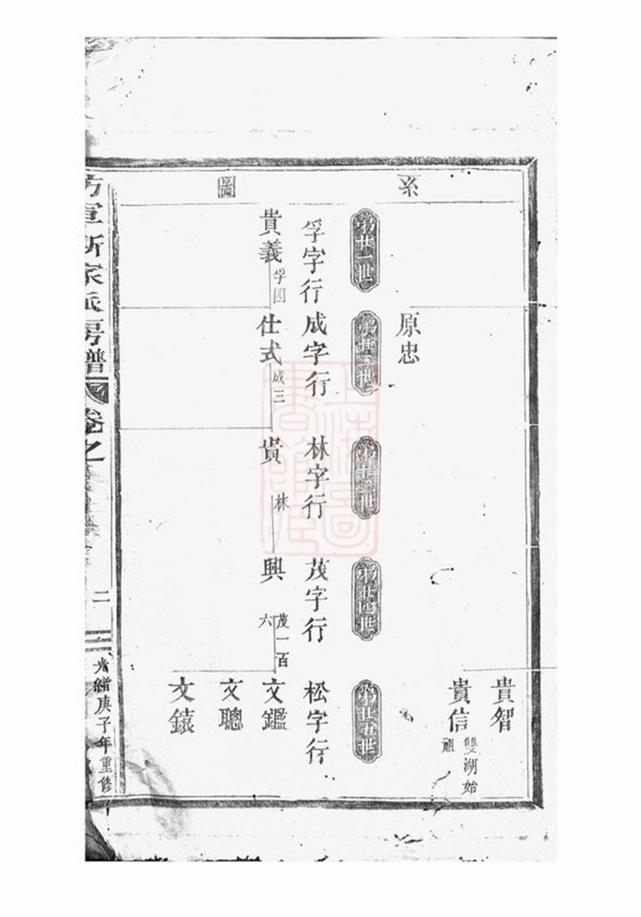 系圖
貴智
貴信 雙湖始祖
原忠
第廿一世
第廿二世
第廿三世
第廿四世
第廿五世
孚字行
成字行
林字行
茂字行
松字行
貴義 孚四
仕式 成三
貴 林
興 茂一百六
文鑑
文聰
文鎱
軍斯家派房譜 卷之
二
光緒庚子年重修